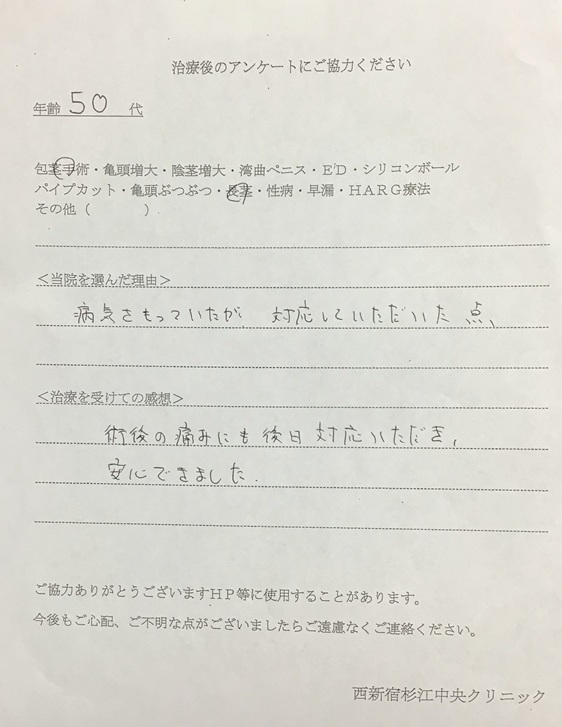 治療後のアンケートにご協力ください
年齢 50 代
包茎手術・亀頭増大・陰茎増大・湾曲ペニス・ED・シリコンボール
パイプカット・亀頭ぶつぶつ・長茎・性病・早漏・HARG療法
その他（　　　）
＜当院を選んだ理由＞
病気をもっていたが 対応していただいた点、
＜治療を受けての感想＞
術後の痛みにも後日対応いただき、
安心できました.
ご協力ありがとうございますHP等に使用することがあります。
今後もご心配、ご不明な点がございましたらご遠慮なくご連絡ください。
西新宿杉江中央クリニック